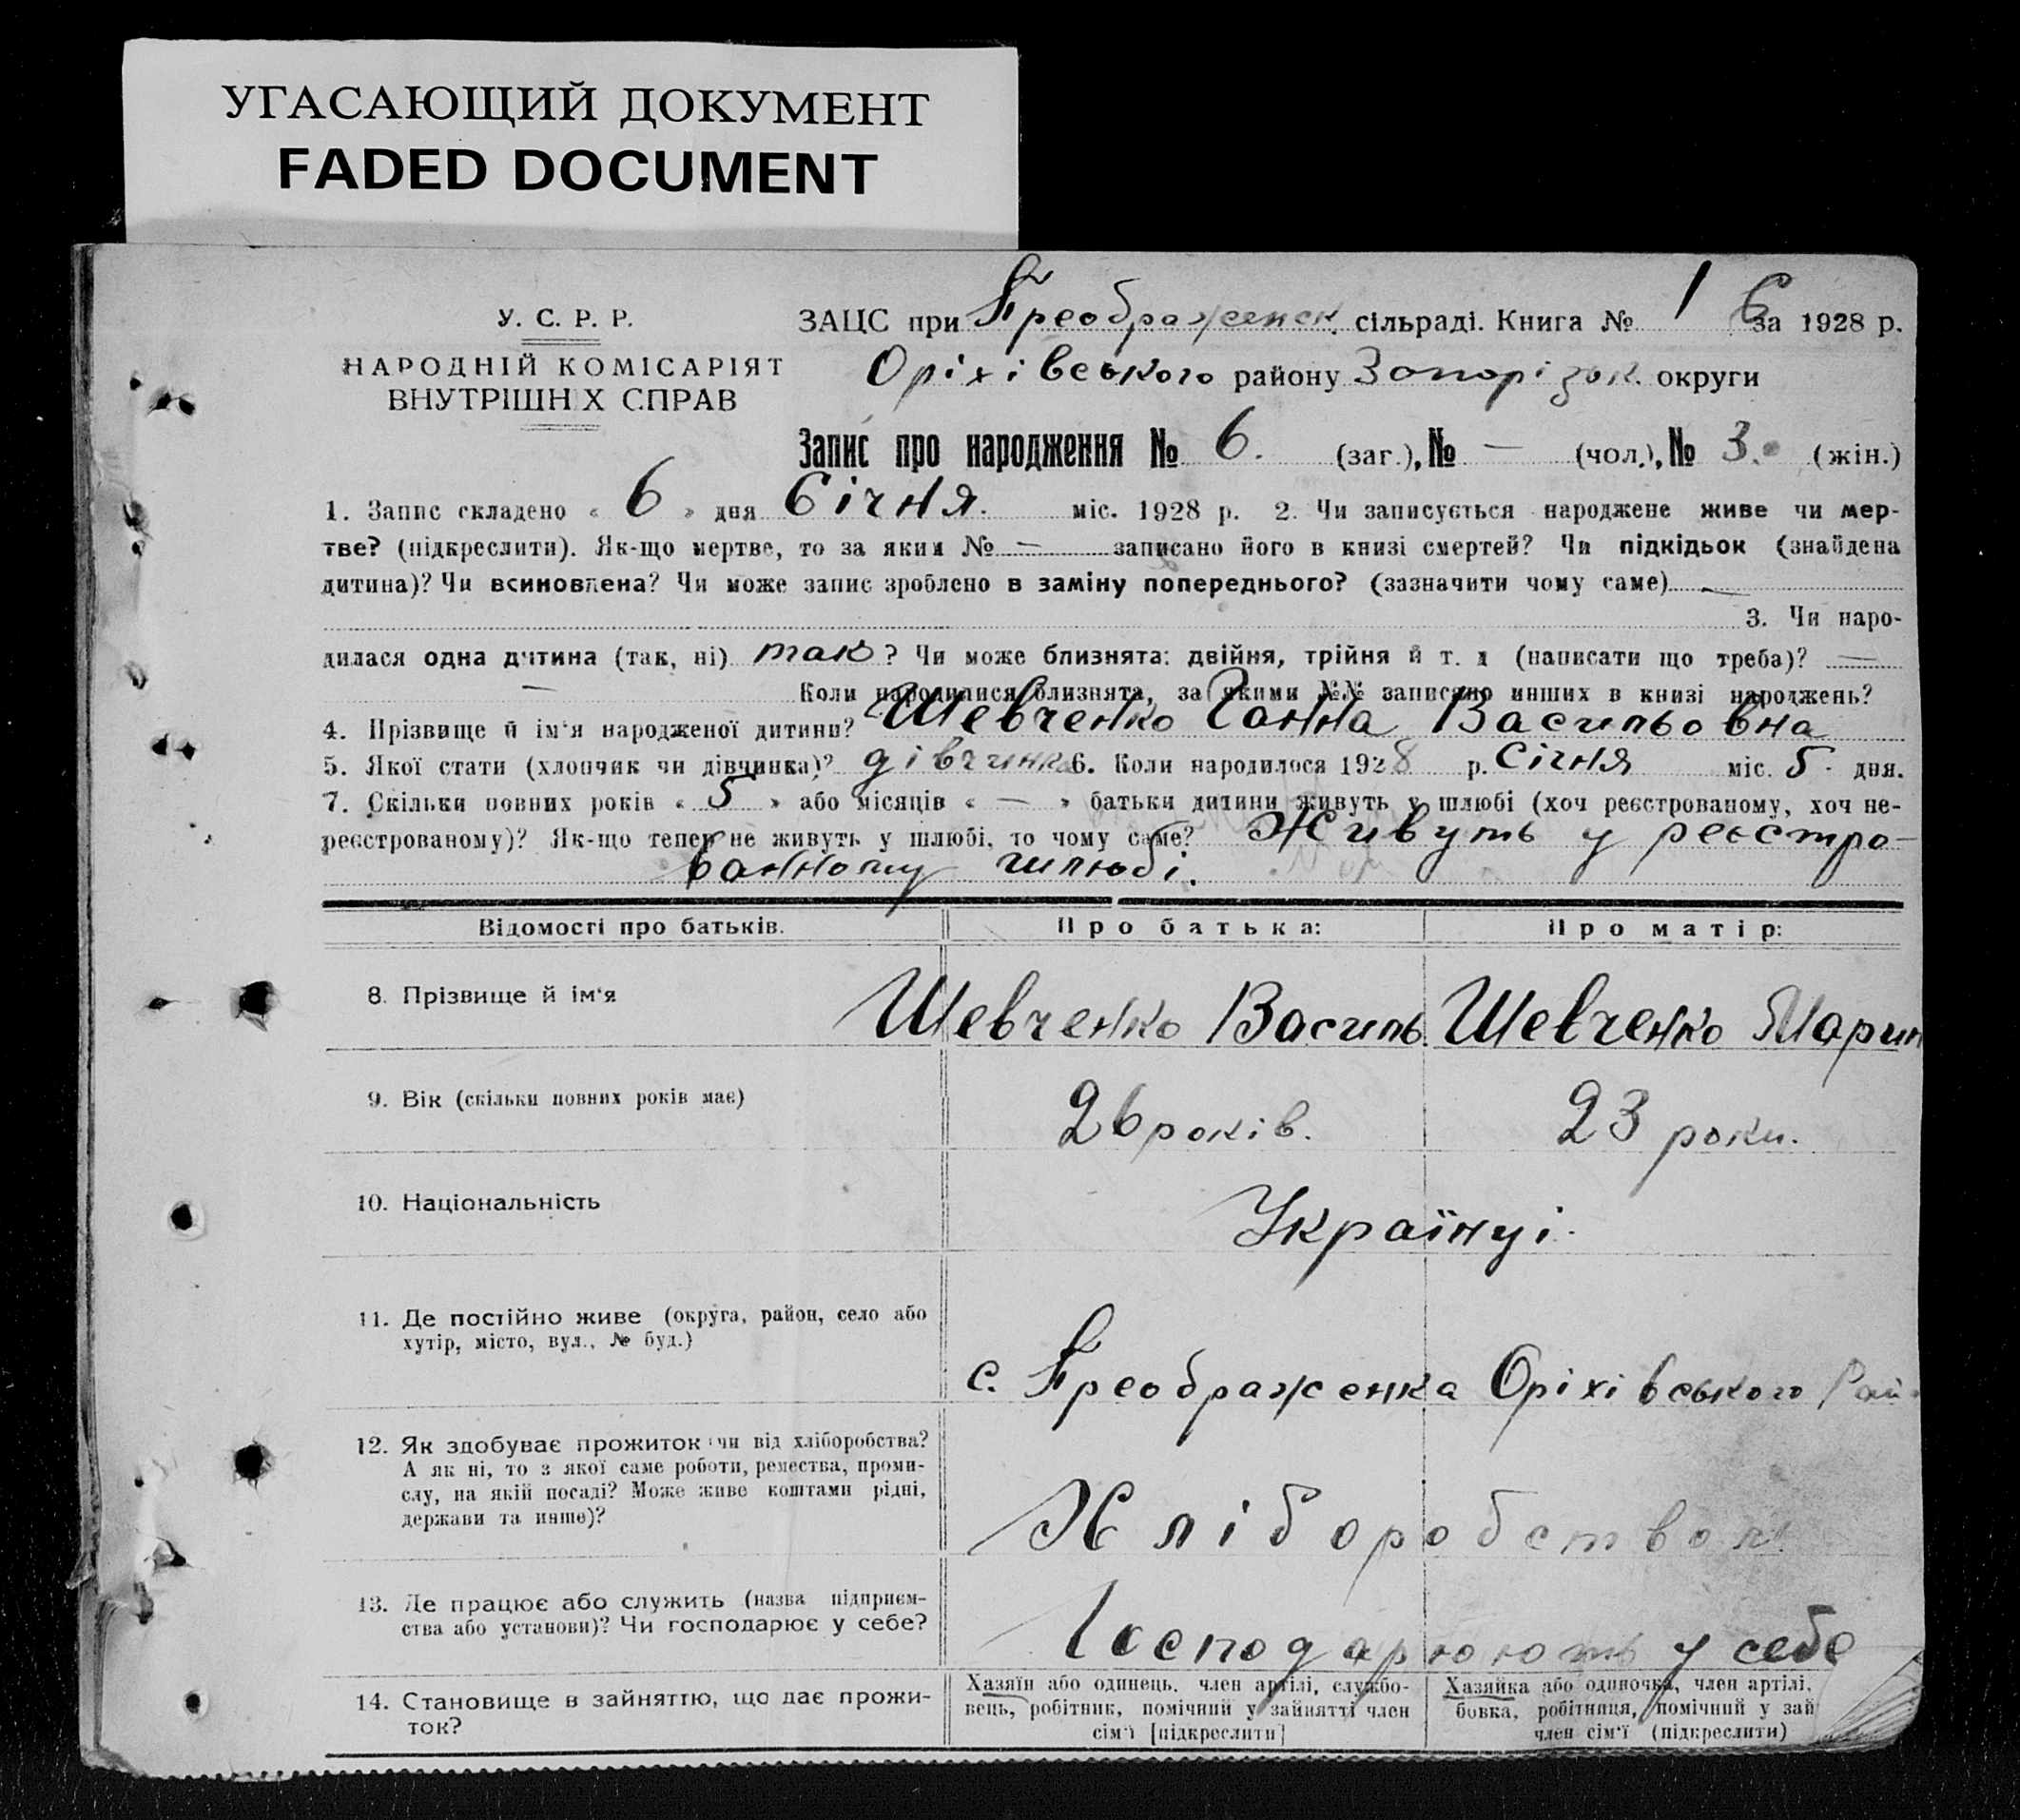 УГАСАЮЩИЙ ДОКУМЕНТ
FADED DOCUMENT
У. С. Р. Р.
НАРОДНІЙ КОМІСАРІЯТ
ВНУТРІШНІХ СПРАВ
ЗАЦС при Преображенск. сільраді. Книга № 1 за 1928 р.
Оріхівського району Запорізьк. округи
Запис про народження № 6. (заг.), № — (чол.), № 3. (жін.)
1. Запис складено « 6 » дня Січня. міс. 1928 р. 2. Чи записується народжене живе чи мер-
тве? (підкреслити). Як-що мертве, то за яким № — записано його в книзі смертей? Чи підкідьок (знайдена
дитина)? Чи всиновлена? Чи може запис зроблено в заміну попереднього? (зазначити чому саме) —
3. Чи наро-
дилася одна дитина (так, ні) так? Чи може близнята: двійня, трійня й т. д (написати що треба)? —
— Коли народилися близнята, за якими №№ записано инших в книзі народжень?
4. Прізвище й ім'я народженої дитини? Шевченко Ганна Васильовна
5. Якої стати (хлопчик чи дівчинка)? дівчинка 6. Коли народилося 1928 р. Січня міс. 5. дня.
7. Скільки повних років « 5 » або місяців « — » батьки дитини живуть у шлюбі (хоч реєстрованому, хоч не-
реєстрованому)? Як-що тепер не живуть у шлюбі, то чому саме? Живуть у реєстро-
ванному шлюбі.
Відомості про батьків. Про батька: Про матір:
8. Прізвище й ім'я Шевченко Василь. Шевченко Марин
9. Вік (скільки повних років має) 26 років. 23 роки.
10. Національність Українці.
11. Де постійно живе (округа, район, село або
хутір, місто, вул., № буд.)
с. Преображенка Оріхівського Рай.
12. Як здобуває прожиток чи від хліборобства?
А як ні, то з якої саме роботи, ремества, проми-
слу, на якій посаді? Може живе коштами рідні,
держави та инше)?
Хліборобством
13. Де працює або служить (назва підприєм-
ства або установи)? Чи господарює у себе?
Господарюють у себе
14. Становище в зайняттю, що дає прожи-
ток?
Хазяїн або одинець, член артілі, службо-
вець, робітник, помічний у зайнятті член
сім'ї [підкреслити]
Хазяйка або одиночка, член артілі,
бовка, робітниця, помічний у зай
член сім'ї (підкреслити)